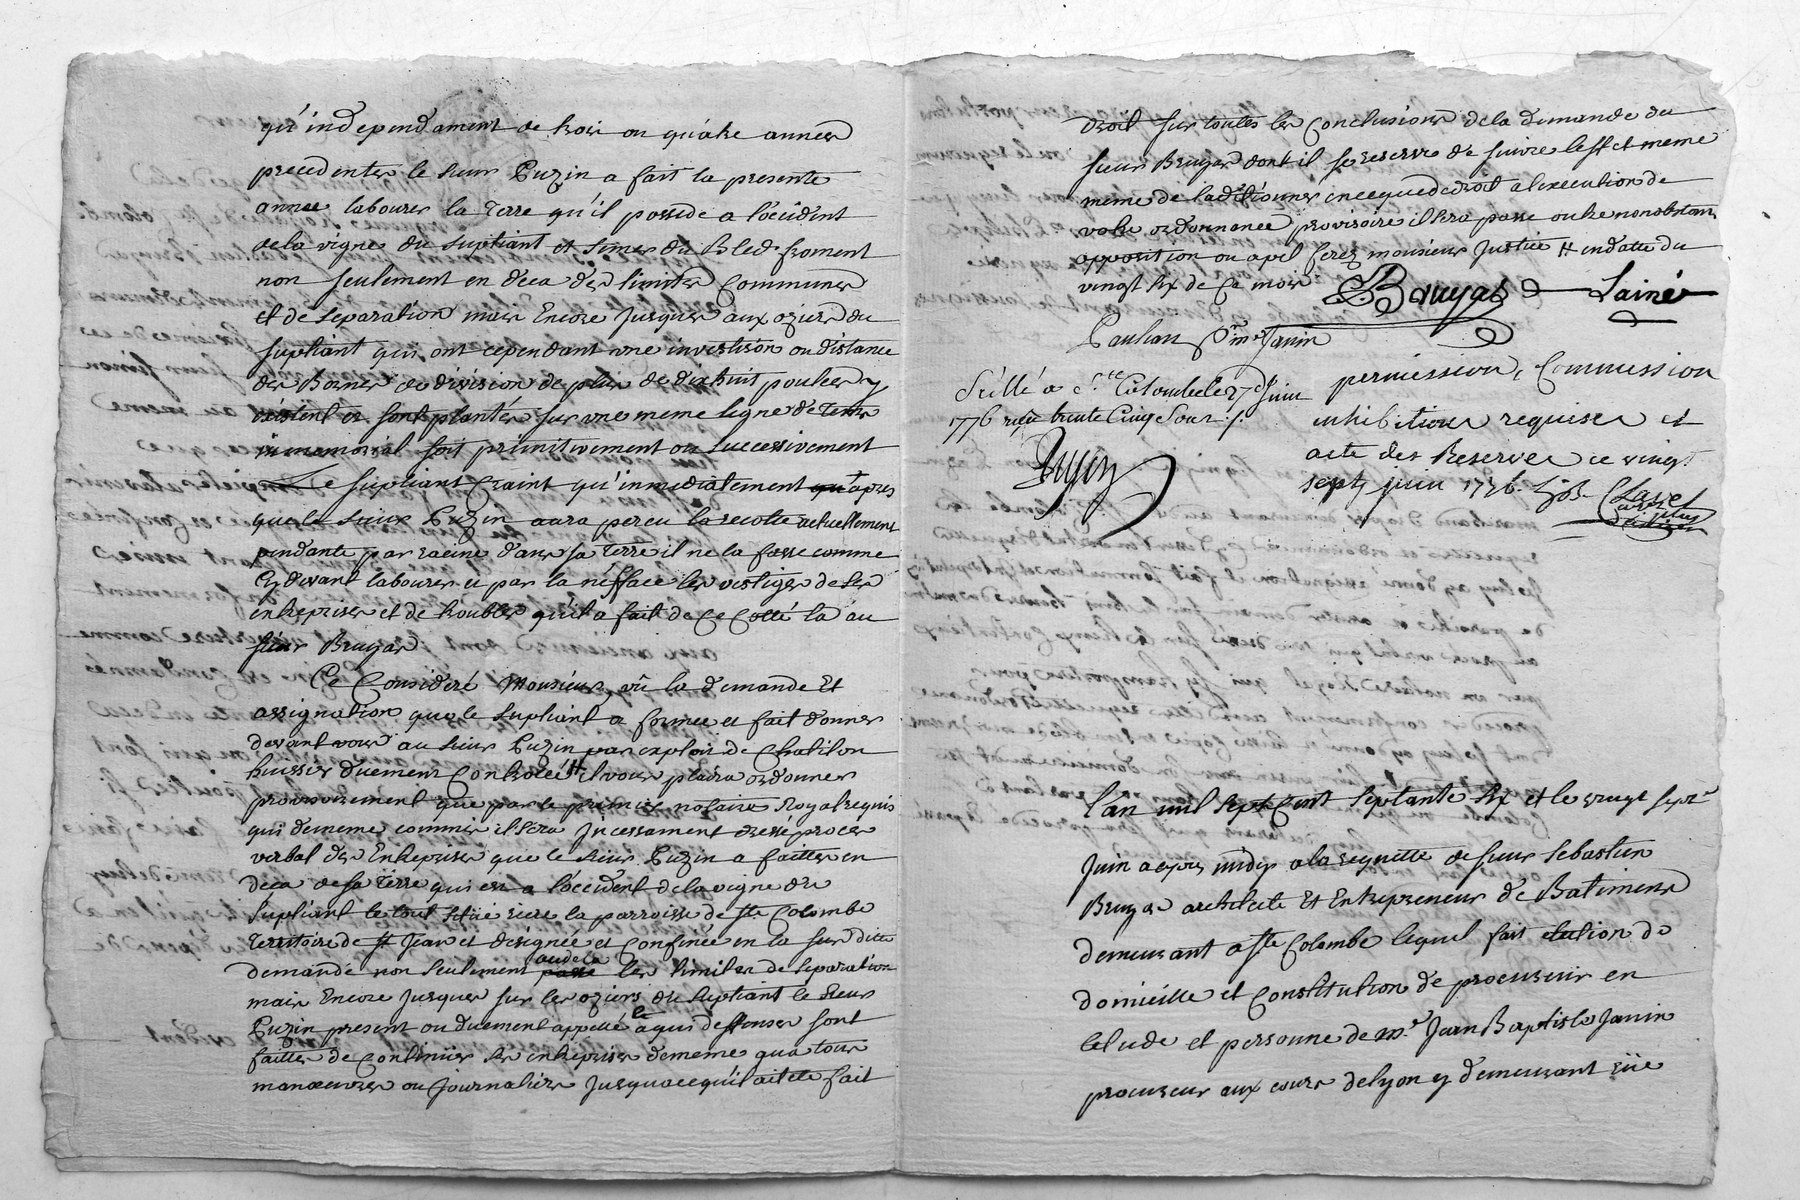 qu'independament de trois ou quatre années
precedentes le sieur Puzin a fait la presente
année labourer la terre qu'il possede a l'occident
de la vigne du supliant et semer du Bled froment
non seulement en deca des limites Communes
et de separation mais Encore jusques aux oziers du
supliant qui ont cependant une investison ou distance
des Bornes de division de plus de dix huit pouces y
existent et sont plantés sur une meme ligne de tems
immemorial soit primitivement ou successivement
Le supliant Craint qu'immediatement qu'apres
que le sieur Puzin aura percu la recolte actuellement
pendante par racine dans sa terre il ne la fasse comme
Cy devant labourer et par la n'efface les vestiges de ses
entreprises et de troubles qu'il a fait de Ce Cotté la au
sieur Bruyas
Ce Consideré Monsieur, vû la demande et
assignation que le supliant a formée et fait donner
devant vous au sieur Puzin par exploit de Chatilon
huissier duement Controllé # il vous plaira ordonner
provisoirement que par le premier notaire Royal requis
qui dememe commis il sera Incessament dressé proces
verbal des Entreprises que le sieur Puzin a faittes en
deca de sa terre qui est a l'occident de la vigne du
supliant le tout situé riere la parroisse de ste Colombe
territoire de st Jean et designée et Confinée en la sur ditte
demande non seulement passé audela les limites de separation
mais Encore jusques sur les oziers du supliant le sieur
Puzin present ou duement appellé a qui deffenses sont
faittes de Continuer ses entreprises demême qua tous
manoeuvres ou journaliers jusqua ce qu'il ait eté fait
droit sur toutes les Conclusions de la demande du
sieur Bruyas dont il se reserve de suivre l'effet et meme
meme de l'aditionner en ce que de droit a l'execution de
votre ordonnance provisoire il sera passé outre nonobstant
opposition ou apel ferez monsieur Justice # en datte du
vingt six de Ce mois Bruyas Lainé
Paulian pr me Janin
Scéllé a Ste Colombe le 27e Juin
1776 reçu trente Cinq sous
permission, Commission
inhibitions requises et
acte des Reserves ce vingt
sept juin 1776
L'an mil sept Cent septante six et le vingt sept
Juin apres midy a la requette de sieur Sebastien
Bruyas architecte Et Entrepreneur de Batimens
demeurant a Ste Colombe lequel fait election de
domicille et Constitution de procureur en
letude et personne de me Jean Baptiste Janin
procureur aux cours de lyon y demeurant rüe